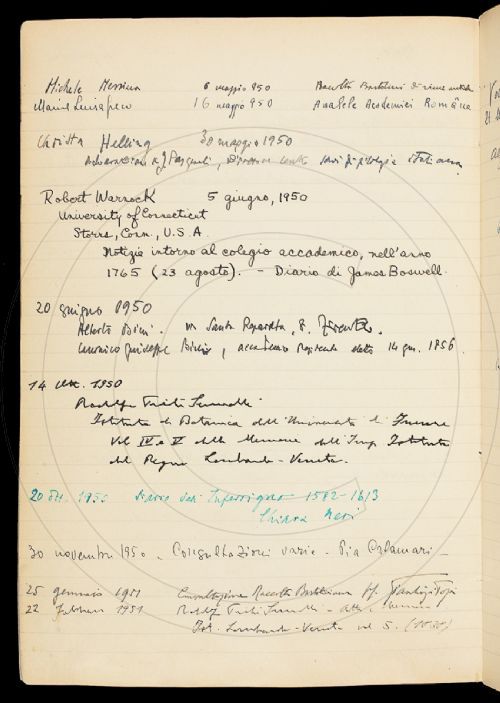 Michele Messina 6 maggio 950 Raccolta Bartoliniana di rime antiche
16 maggio 950 Analele Academiei Române
Christa Helling 30 maggio 1950
Pasquali, studi di filologia italiana
Robert Warnock 5 giugno, 1950
University of Connecticut
Storrs, Conn., U.S.A.
Notizie intorno al colegio accademico, nell'anno
1765 (23 agosto). - Diario di James Boswell.
20 giugno 1950
Alberto v. Santa Reparata, 8. Firenze.
Canonico Giuseppe accademico 14 1856.
14 1950
Rodolfo
Istituto di Botanica dell'Università di Firenze
Vol IV e V delle Memorie dell'Imp. Istituto
del Regno Lombardo-Veneto.
20 1950 Inferrigno 1582-1613
Chiara Neri
30 novembre 1950 - Consultazioni varie - Pia Calamari -
25 gennaio 1951 Consultazione Raccolta Bartoliniana
22 Febbraio 1951 Rodolfo
Ist. Lombardo-Veneto vol 5. (1838)